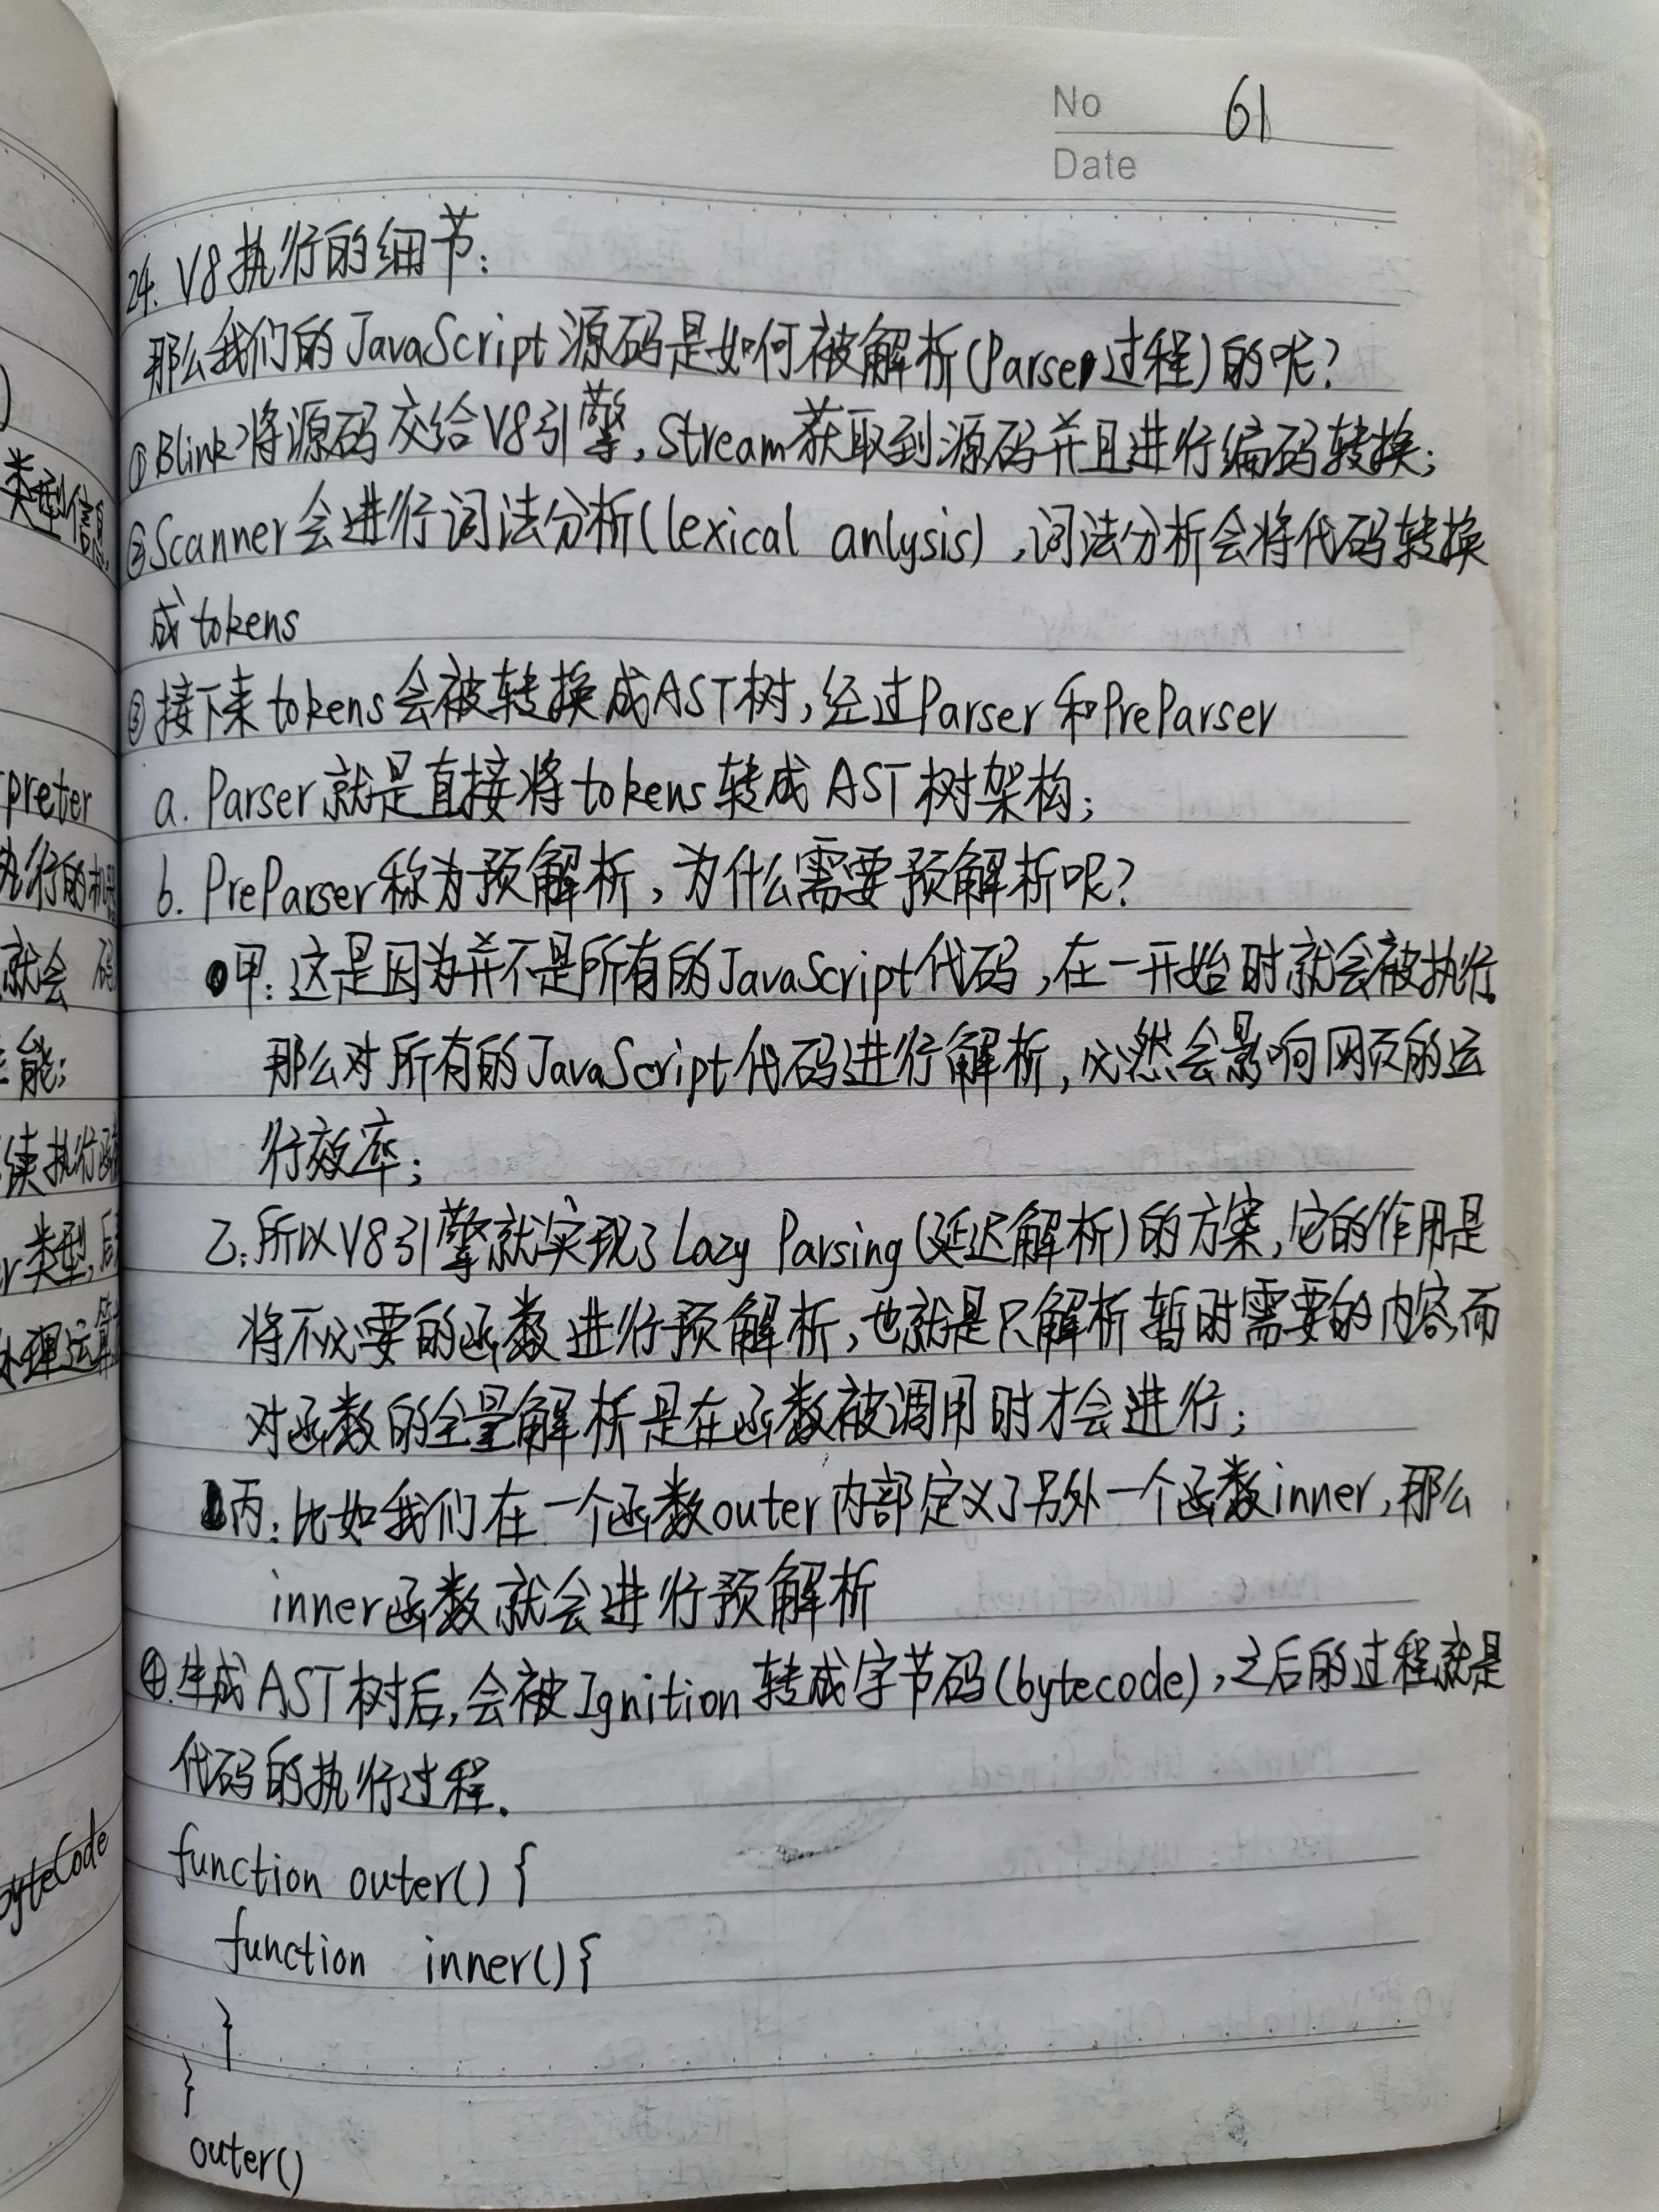 No 61
Date
24. V8执行的细节:
那么我们的JavaScript源码是如何被解析(Parser过程)的呢?
①Blink将源码交给V8引擎,Stream获取到源码并且进行编码转换;
②Scanner会进行词法分析(lexical anlysis),词法分析会将代码转换
成tokens
③接下来tokens会被转换成AST树,经过Parser和PreParser
a. Parser就是直接将tokens转成AST树架构;
b. PreParser称为预解析,为什么需要预解析呢?
甲:这是因为并不是所有的JavaScript代码,在一开始时就会被执行.
那么对所有的JavaScript代码进行解析,必然会影响网页的运
行效率;
乙:所以V8引擎就实现了Lazy Parsing(延迟解析)的方案,它的作用是
将不必要的函数进行预解析,也就是只解析暂时需要的内容,而
对函数的全量解析是在函数被调用时才会进行;
丙:比如我们在一个函数outer内部定义了另外一个函数inner,那么
inner函数就会进行预解析
④.生成AST树后,会被Ignition转成字节码(bytecode),之后的过程就是
代码的执行过程.
function outer() {
function inner(){
}
}
outer()
类型信息
preter
执行的机
就会 码
能;
续执行
类型,后
处理运算
byteCode